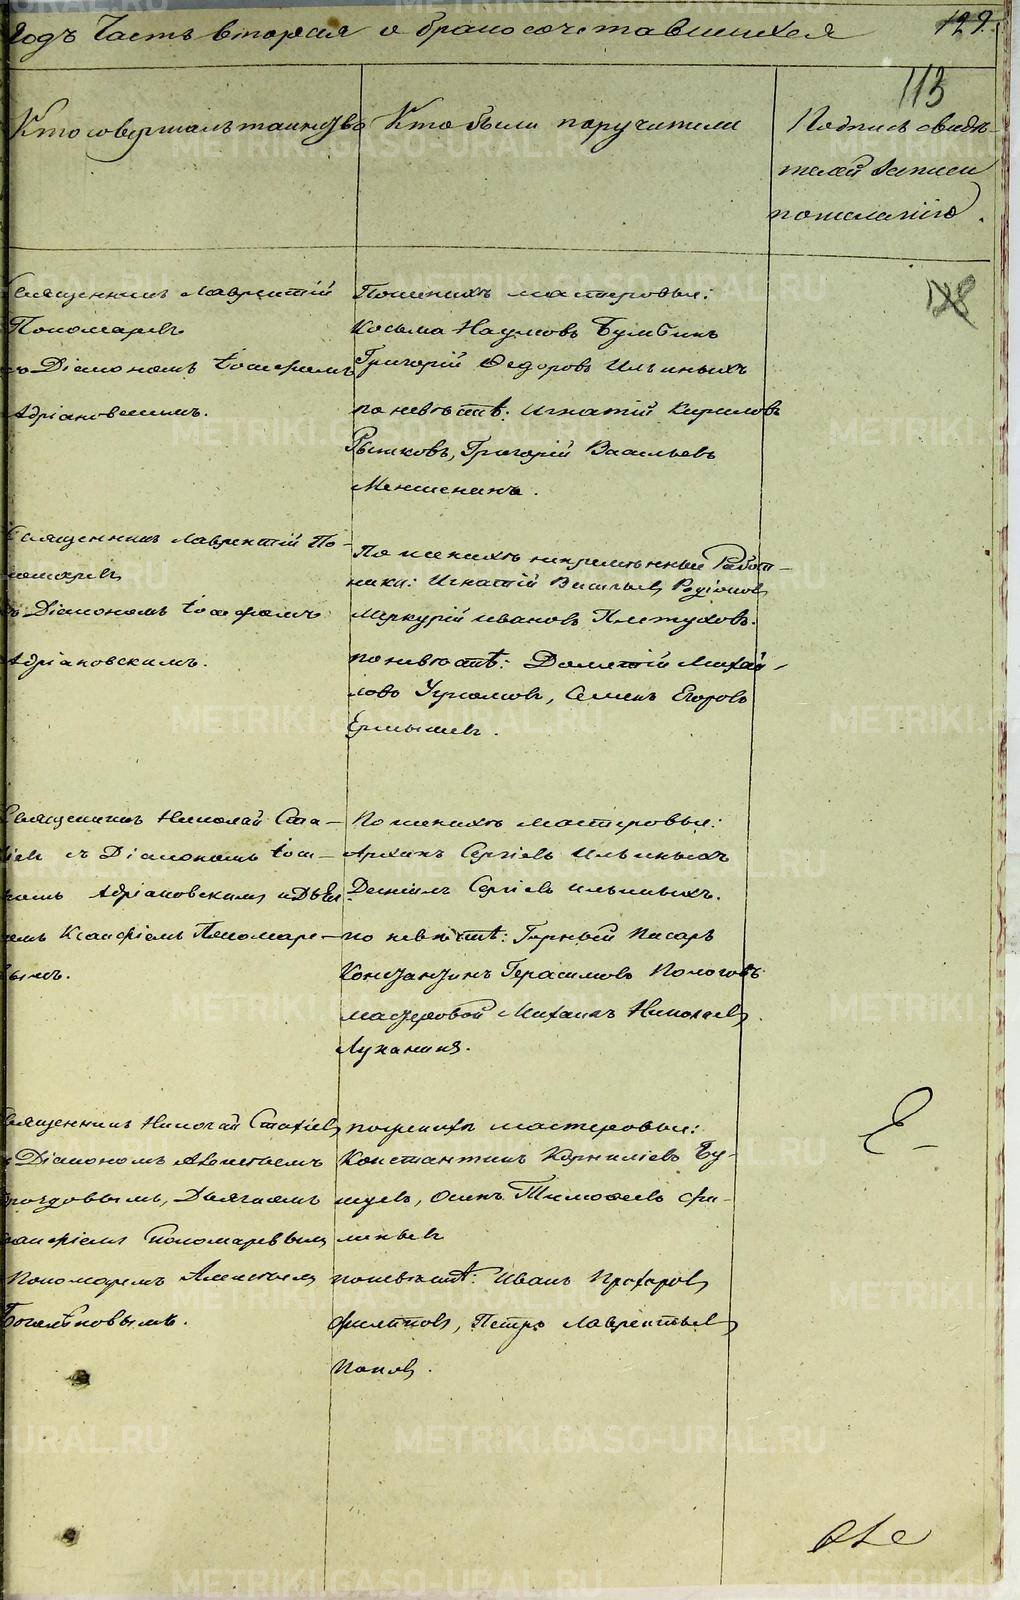 Годъ Часть вторая о бракосочетавшихся 129.
113
Кто совершалъ таинство
Кто были поручители
Подпись свидѣ-
телей записи
по желанію.
128
Священникъ Лаврентій
Пономаревъ
съ Діакономъ Іосифомъ
Адріановскимъ.
По женихѣ мастеровые:
Косьма Наумовъ
Григорій Федоровъ Ильиныхъ
по невѣстѣ: Игнатій Кириловъ
Рычковъ, Григорій Васильевъ
Меншенинъ.
Священникъ Лаврентій По-
номаревъ
съ Діакономъ Іосифомъ
Адріановскимъ.
По женихѣ непремѣнные Работ-
ники: Игнатій Васильевъ Родіоновъ
Меркурій Ивановъ Плетуховъ.
по невѣстѣ: Дометій Михай-
ловъ, Семенъ Егоровъ
.
Священникъ Николай Ста-
хіевъ съ Діакономъ Іоси-
фомъ Адріановскимъ и Дьяч-
емъ Ксанфіемъ Пономаре-
вымъ.
По женихѣ мастеровые:
Архипъ Сергіевъ Ильиныхъ
Даніилъ Сергіевъ Ильиныхъ.
по невѣстѣ: Горный Писарь
Константинъ Герасимовъ Пологовъ
мастеровой Михаилъ Николаевъ
Луканинъ.
Священникъ Николай Стахіевъ
съ Діакономъ Алексѣемъ
Дроздовымъ, Дьячкомъ
Ксанфіемъ Пономаревымъ
Пономаремъ Алексѣемъ
Богалѣповымъ.
по женихѣ мастеровые:
Константинъ Корниліевъ Бу-
шуевъ, Осипъ Тимофеевъ Фи-
линыхъ
по невѣстѣ: Иванъ Прохоровъ
Филатовъ, Петръ Лаврентьевъ
Поповъ.
METRIKI.GASO-URAL.RU